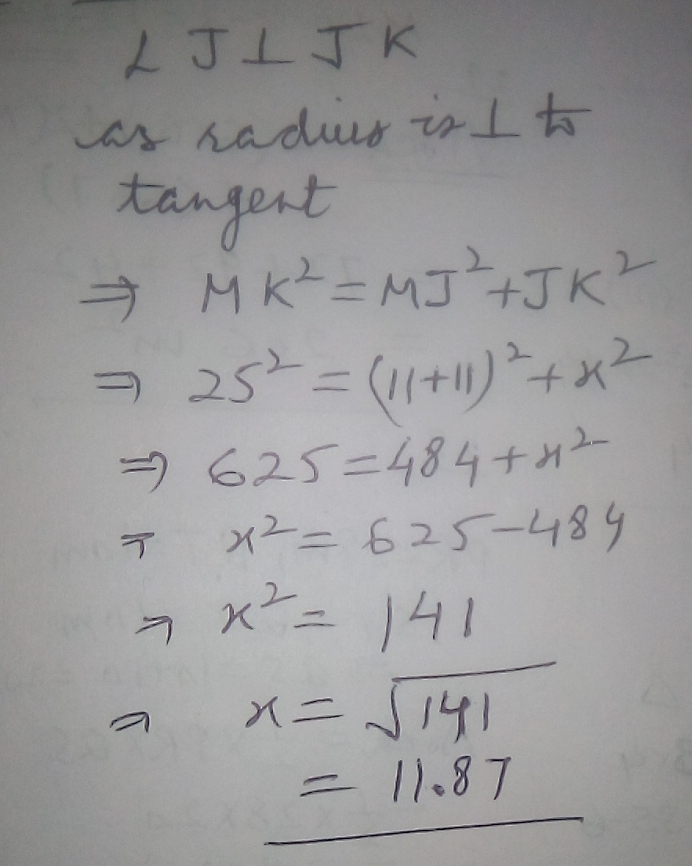 LJ ⊥ JK
as radius is ⊥ to
tangent
⇒ MK² = MJ² + JK²
⇒ 25² = (11+11)² + x²
⇒ 625 = 484 + x²
⇒ x² = 625 - 484
⇒ x² = 141
⇒ x = √141
= 11.87